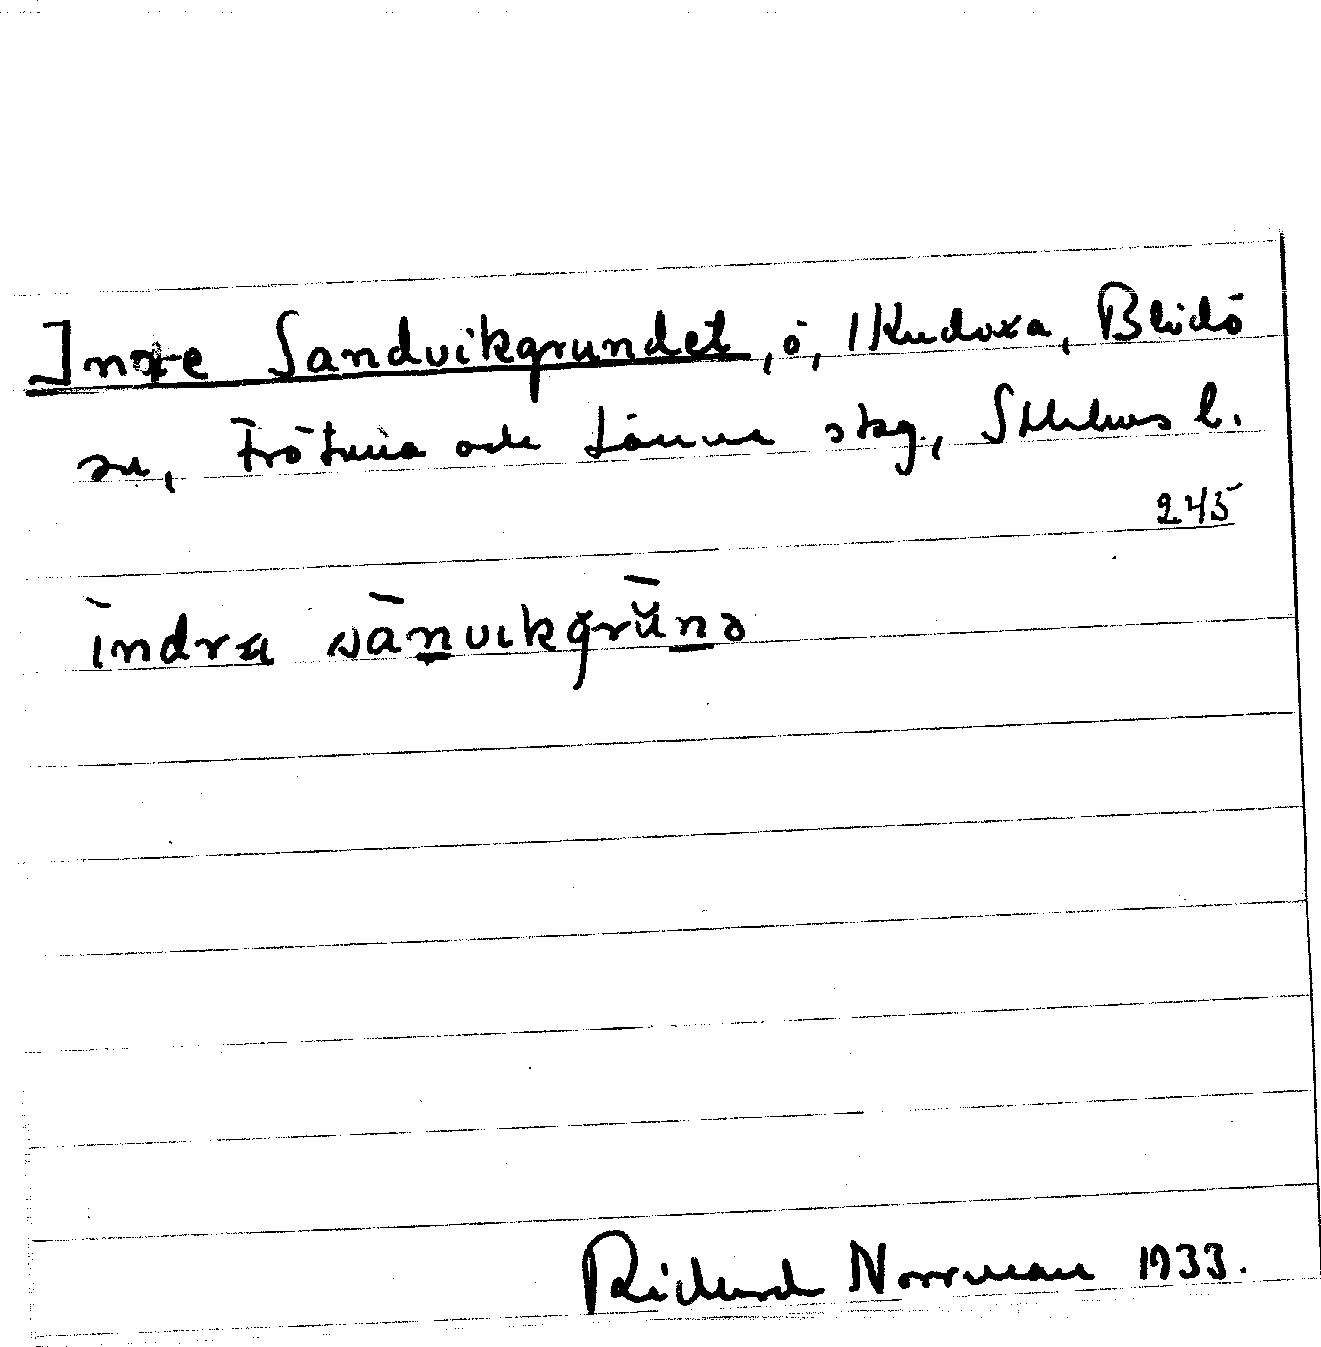 Inre Sandvikgrundet, ö, Kudoxa, Blidö
sn, Frötuna och Länna skg, Sthlms l.
245
indra sanvikgrunə
Richard Norrman 1933.